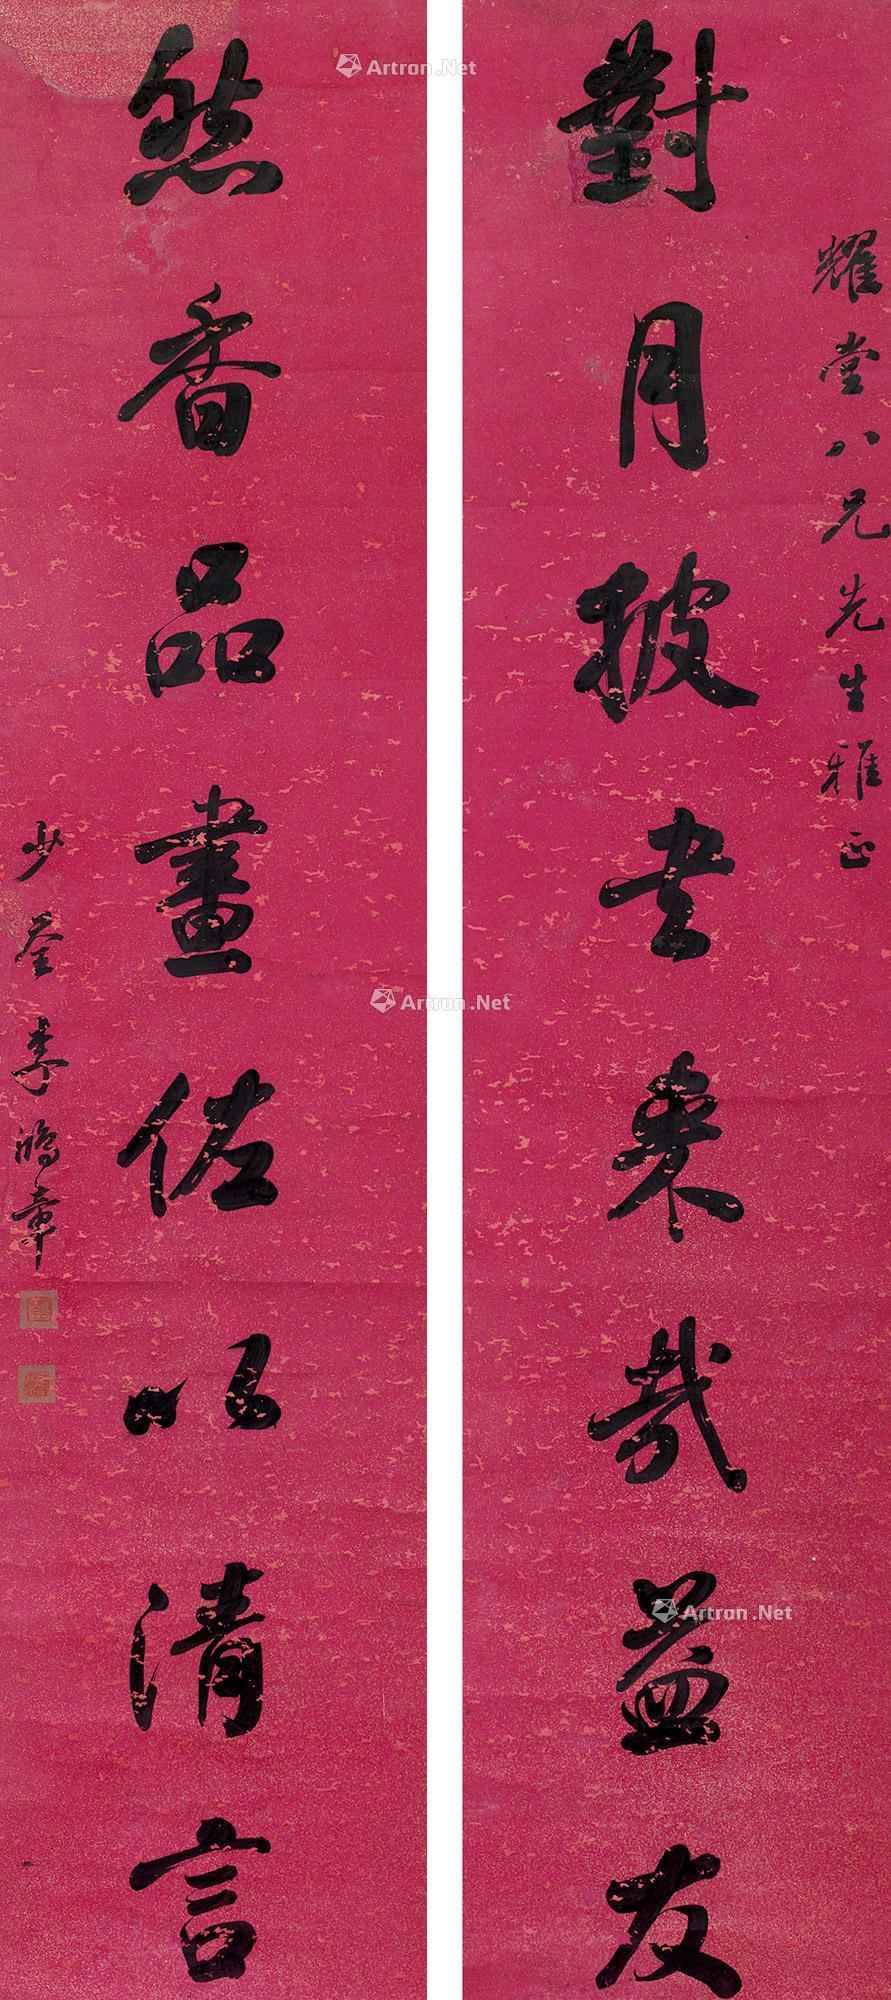 耀堂八兄先生雅正
對月披書來哉益友
然香品畫佐以清言
少荃李鴻章
Artron.Net
Artron.Net
Artron.Net